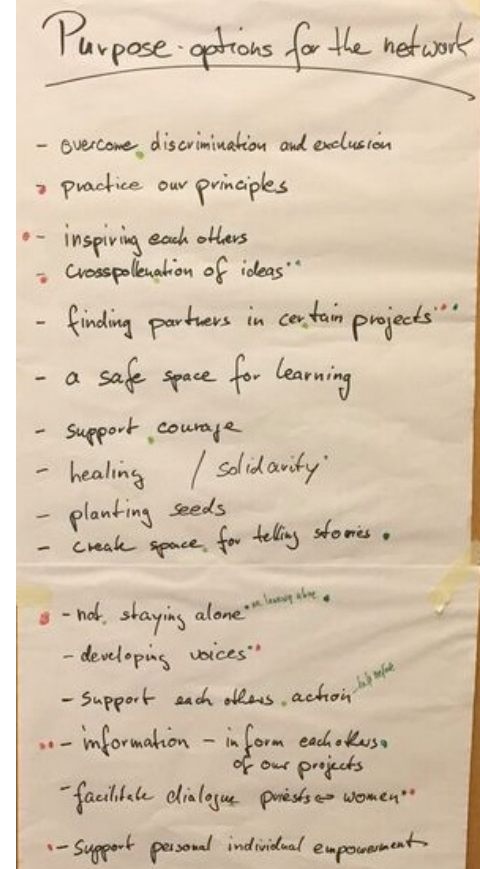 Purpose-options for the network
- overcome discrimination and exclusion
- practice our principles
- inspiring each others
- Crosspollenation of ideas
- finding partners in certain projects
- a safe space for learning
- support courage
- healing / solidarity
- planting seeds
- create space for telling stories
- not staying alone
- developing voices
- Support each others action
- information - inform each others
of our projects
- facilitate dialogue priests ↔ women
- Support personal individual empowerment